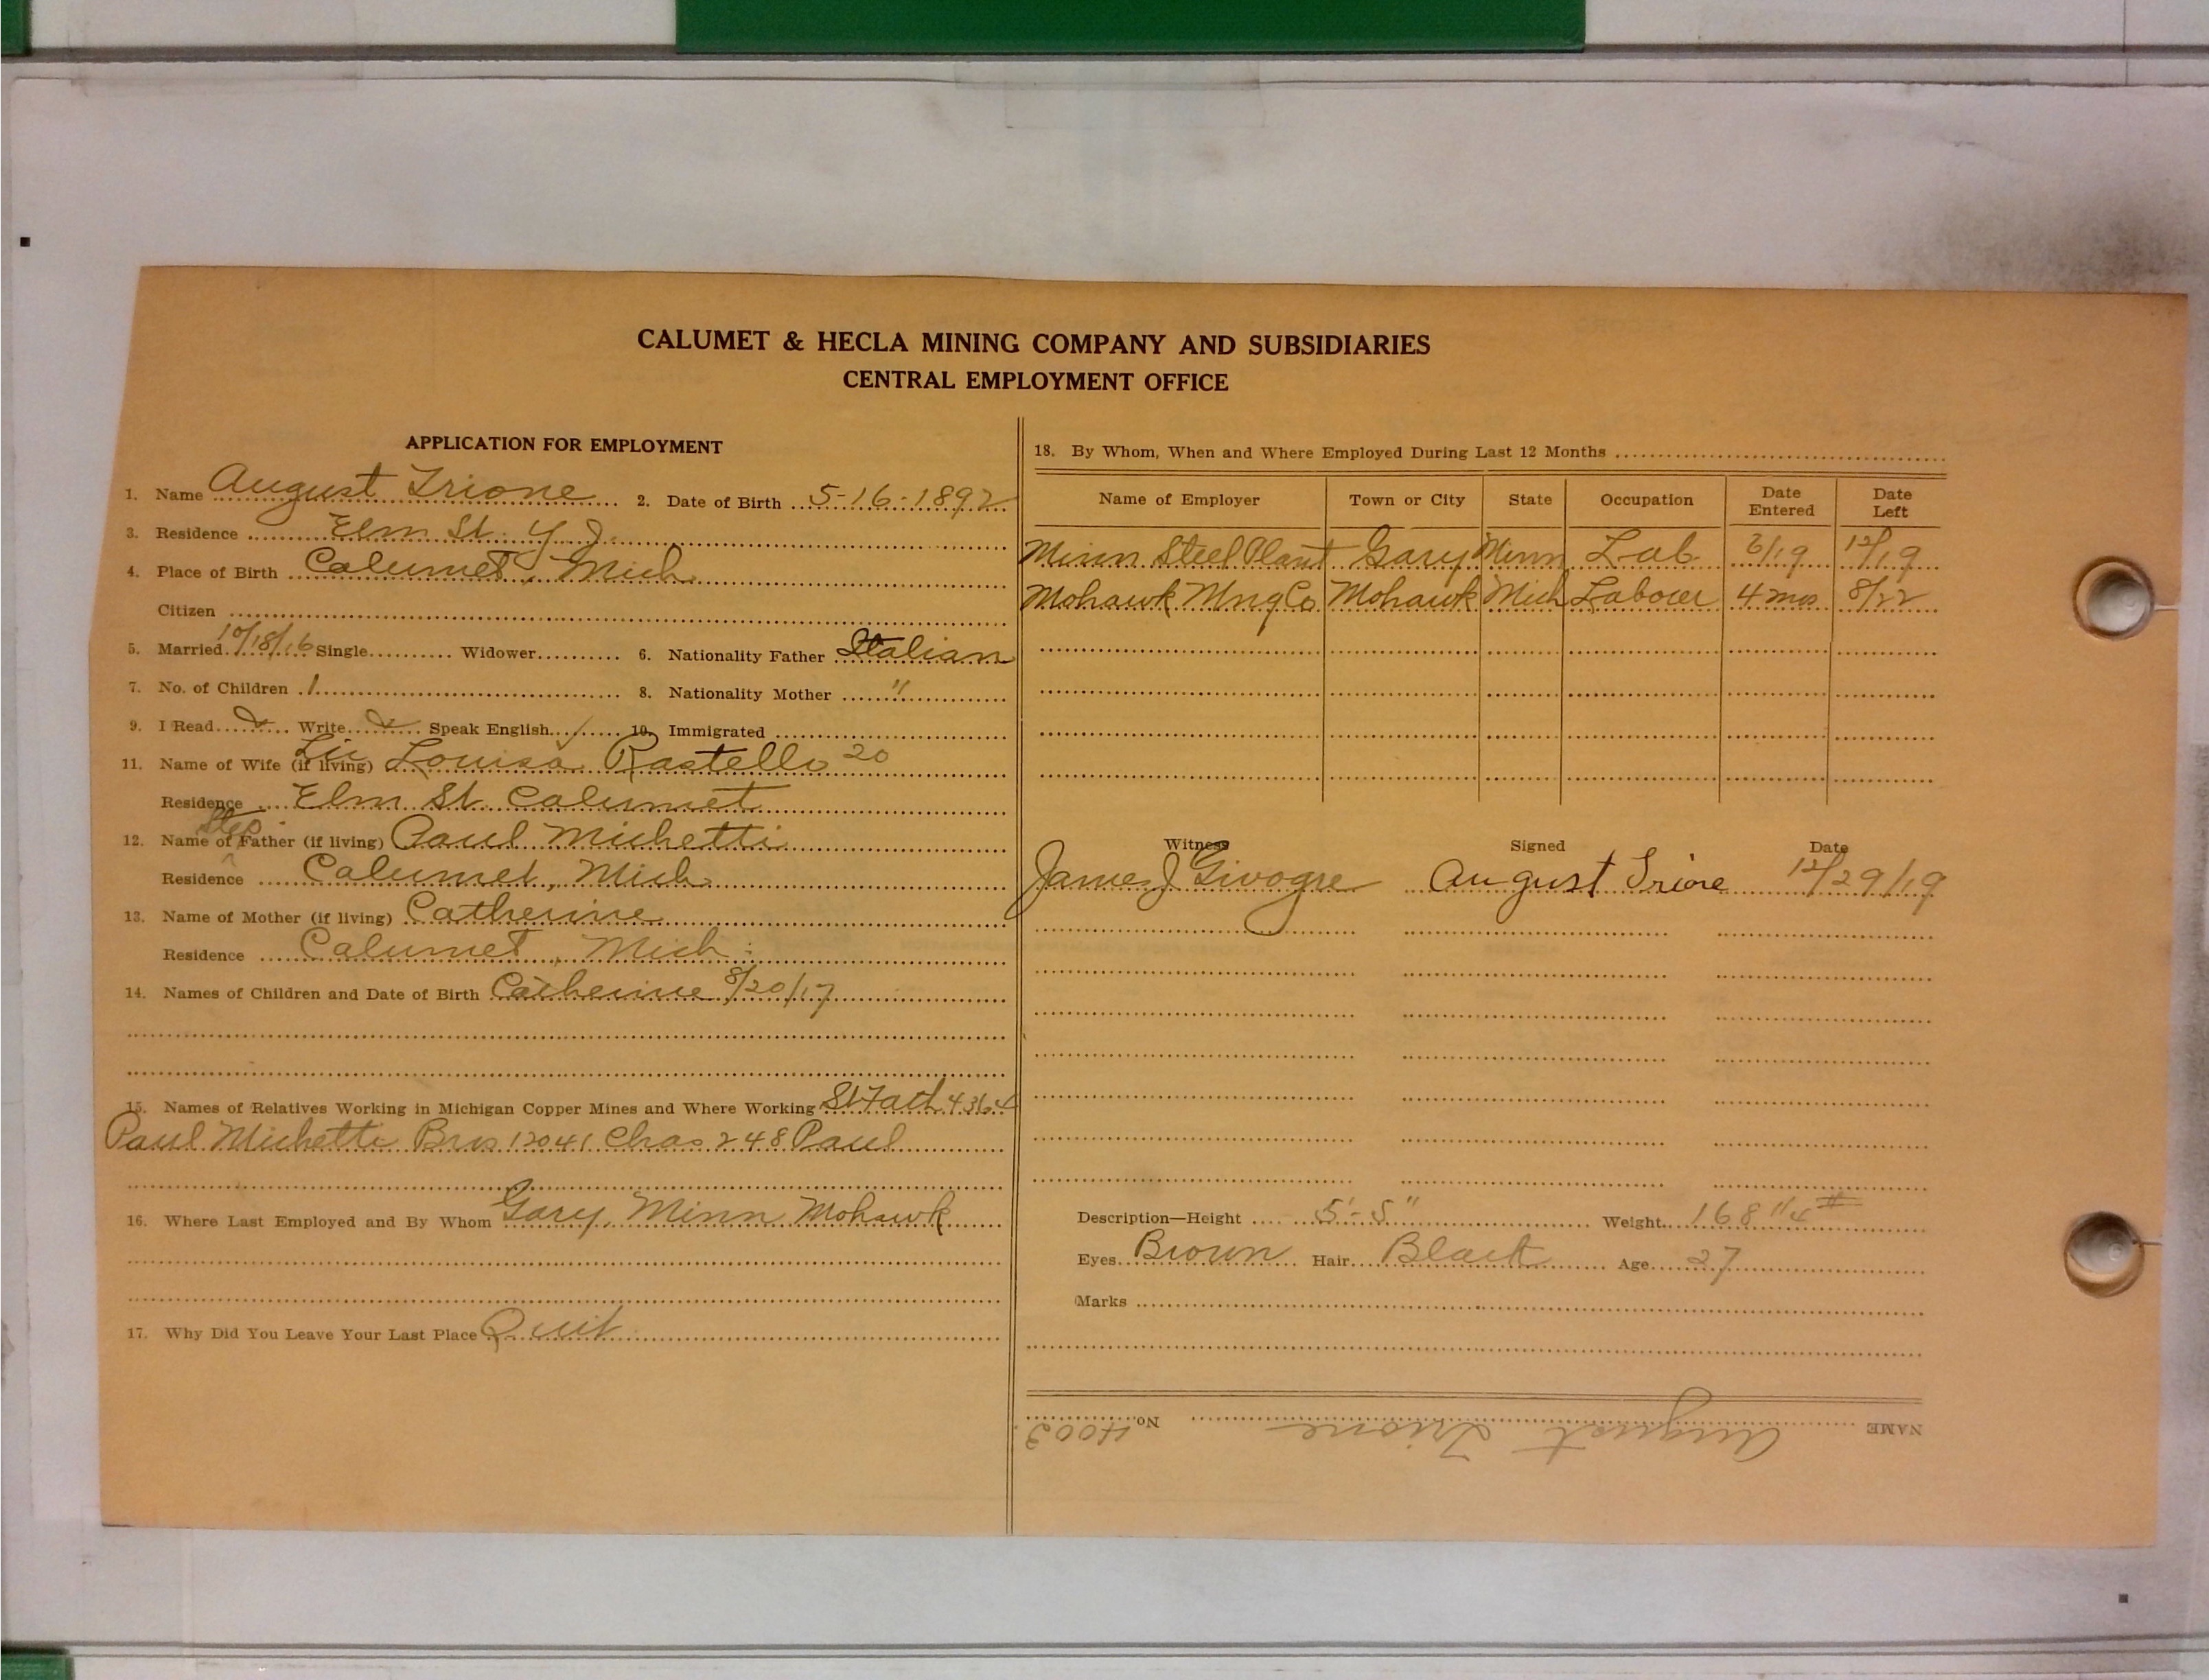 CALUMET & HECLA MINING COMPANY AND SUBSIDIARIES
CENTRAL EMPLOYMENT OFFICE
APPLICATION FOR EMPLOYMENT
1. Name August Trione 2. Date of Birth 5-16-1892
3. Residence Elm St. Y. J.
4. Place of Birth Calumet, Mich.
Citizen
5. Married 10/18/16 Single Widower 6. Nationality Father Italian
7. No. of Children 1 8. Nationality Mother "
9. I Read Write Speak English 10. Immigrated
11. Name of Wife (if living) Louisa Rastello 20
Residence Elm St. Calumet
12. Name of Step Father (if living) Paul Michetti
Residence Calumet, Mich.
13. Name of Mother (if living) Catherine
Residence Calumet, Mich:
14. Names of Children and Date of Birth Catherine 8/20/17
15. Names of Relatives Working in Michigan Copper Mines and Where Working St Fath 4364
Paul Michetti Bros 12041 Chas 248 Paul
16. Where Last Employed and By Whom Gary, Minn Mohawk
17. Why Did You Leave Your Last Place Quit
18. By Whom, When and Where Employed During Last 12 Months
Name of Employer Town or City State Occupation Date Entered Date Left
Minn Steel Plant Gary Minn Lab 3/19 12/19
Mohawk Mng Co Mohawk Mich Labour 4 mos 8/22
Witness Signed Date
James J Givogre August Trione 12/29/19
Description—Height 5'-5" Weight 168 1/4 #
Eyes Brown Hair Black Age 27
Marks
NAME August Trione No. 4003